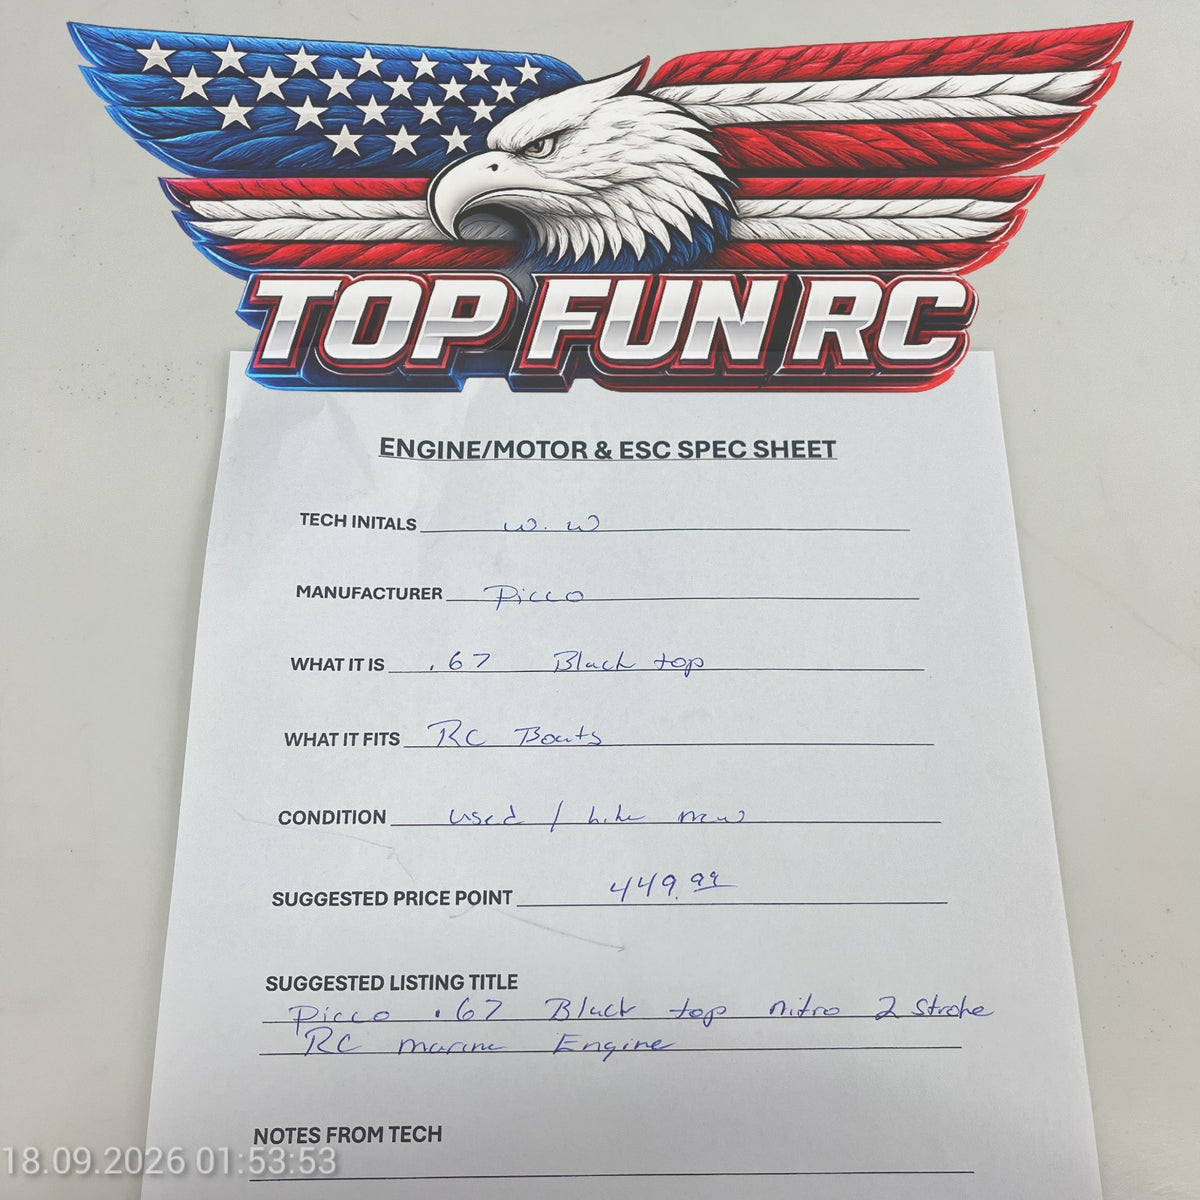 TOP FUN RC
ENGINE/MOTOR & ESC SPEC SHEET
TECH INITALS w. w
MANUFACTURER Picco
WHAT IT IS .67 Black top
WHAT IT FITS RC Boats
CONDITION used / like new
SUGGESTED PRICE POINT 449.99
SUGGESTED LISTING TITLE
Picco .67 Black top nitro 2 Stroke
RC marine Engine
NOTES FROM TECH
18.09.2026 01:53:53